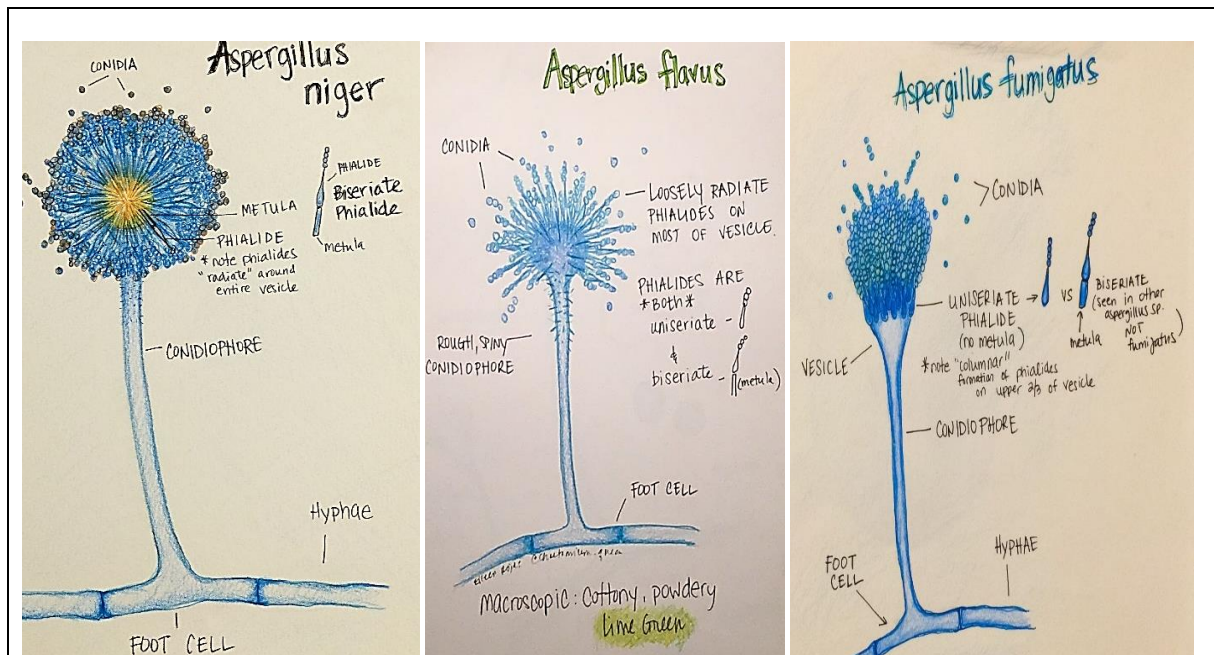 Aspergillus
niger
CONIDIA
PHIALIDE
Biseriate
Phialide
metula
METULA
PHIALIDE
*note phialides
"radiate" around
entire vesicle
CONIDIOPHORE
Hyphae
FOOT CELL
Aspergillus flavus
CONIDIA
LOOSELY RADIATE
PHIALIDES ON
MOST OF VESICLE.
PHIALIDES ARE
*Both*
uniseriate -
&
biseriate -
(metula)
ROUGH, SPINY
CONIDIOPHORE
FOOT CELL
macroscopic: Cottony, powdery
lime Green
Aspergillus fumigatus
CONIDIA
UNISERIATE
PHIALIDE
(no metula)
VS
BISERIATE
(seen in other
aspergillus sp.
NOT
fumigatus)
metula
*note "columnar"
formation of phialides
on upper 2/3 of vesicle
VESICLE
CONIDIOPHORE
HYPHAE
FOOT
CELL